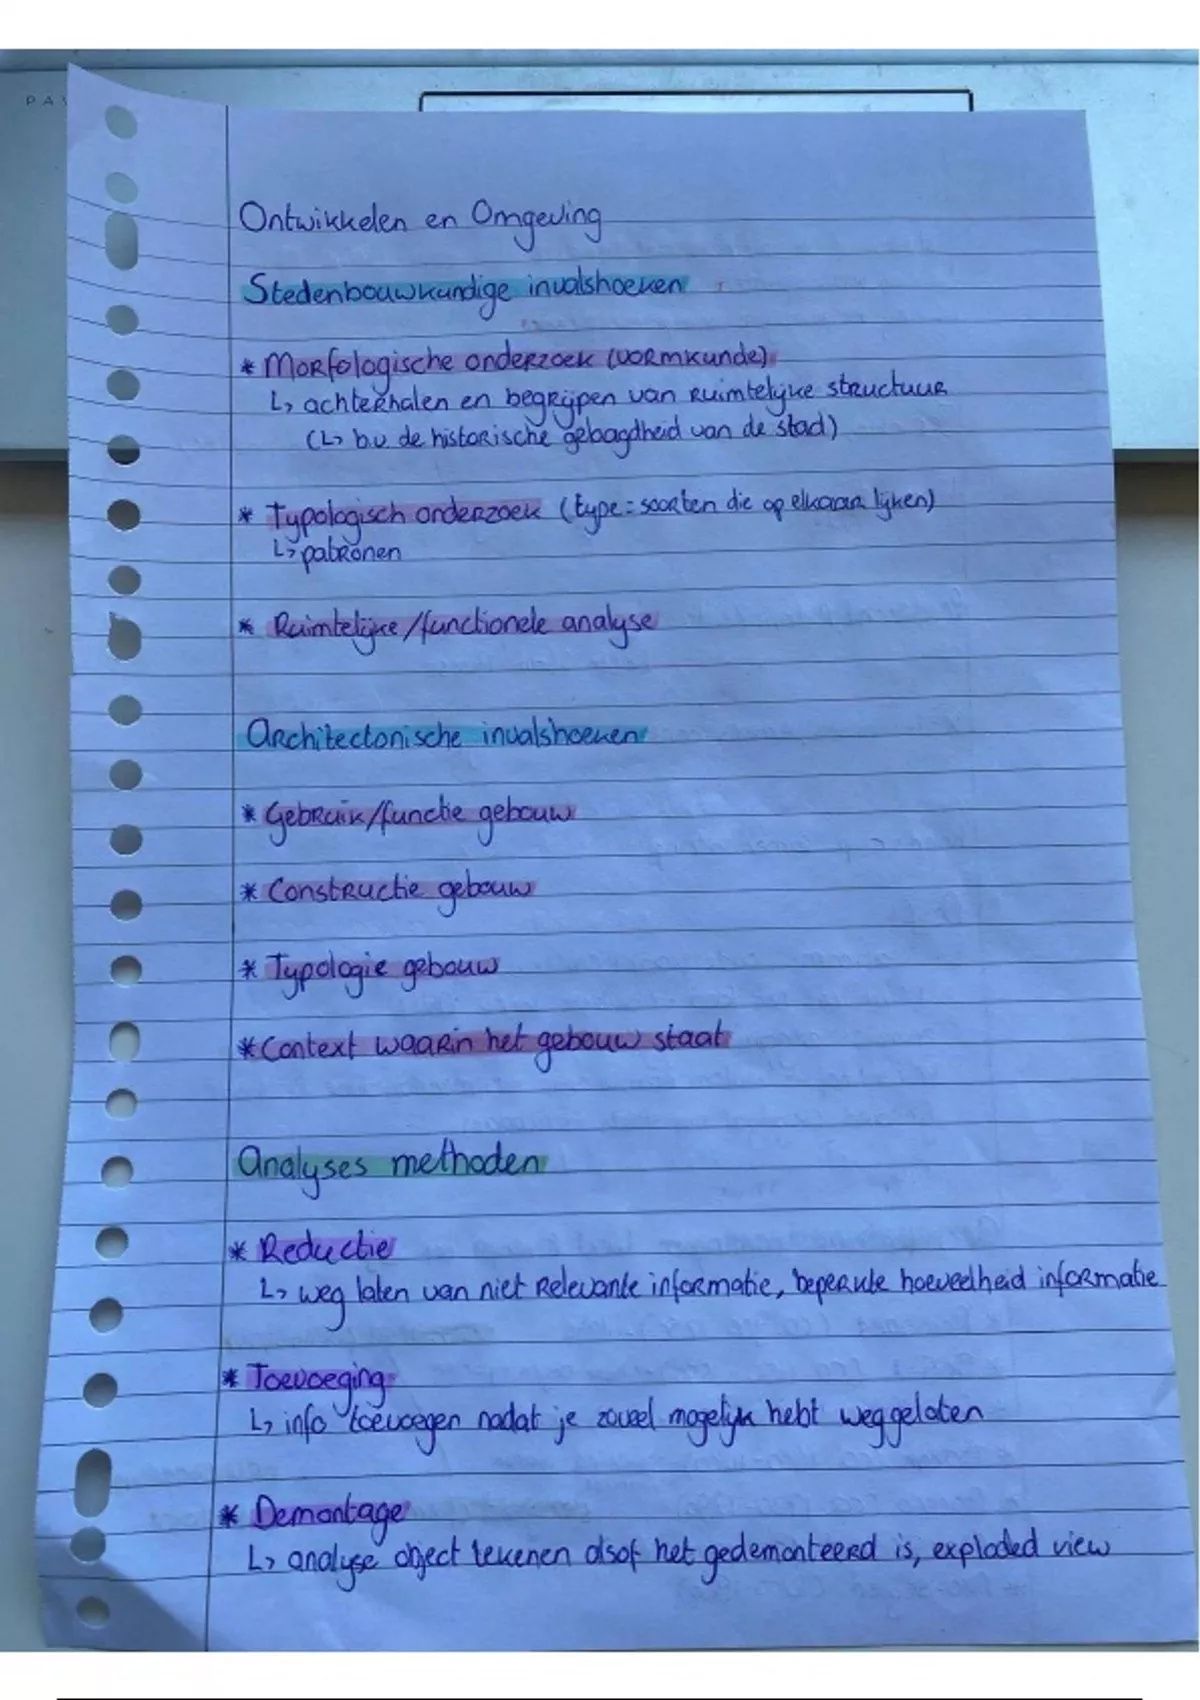 PAV
Ontwikkelen en Omgeving
Stedenbouwkundige invalshoeken
* Morfologische onderzoek (vormkunde)
↳ achterhalen en begrijpen van ruimtelijke structuur
(↳ b.v. de historische gelaagdheid van de stad)
* Typologisch onderzoek (type = soorten die op elkaar lijken)
↳ patronen
* Ruimtelijke/functionele analyse
Architectonische invalshoeken
* Gebruik/functie gebouw
* Constructie gebouw
* Typologie gebouw
* Context waarin het gebouw staat
Analyses methoden
* Reductie
↳ weg laten van niet relevante informatie, beperkte hoeveelheid informatie
* Toevoeging
↳ info toevoegen nadat je zoveel mogelijk hebt weggelaten
* Demontage
↳ analyse object tekenen alsof het gedemonteerd is, exploded view